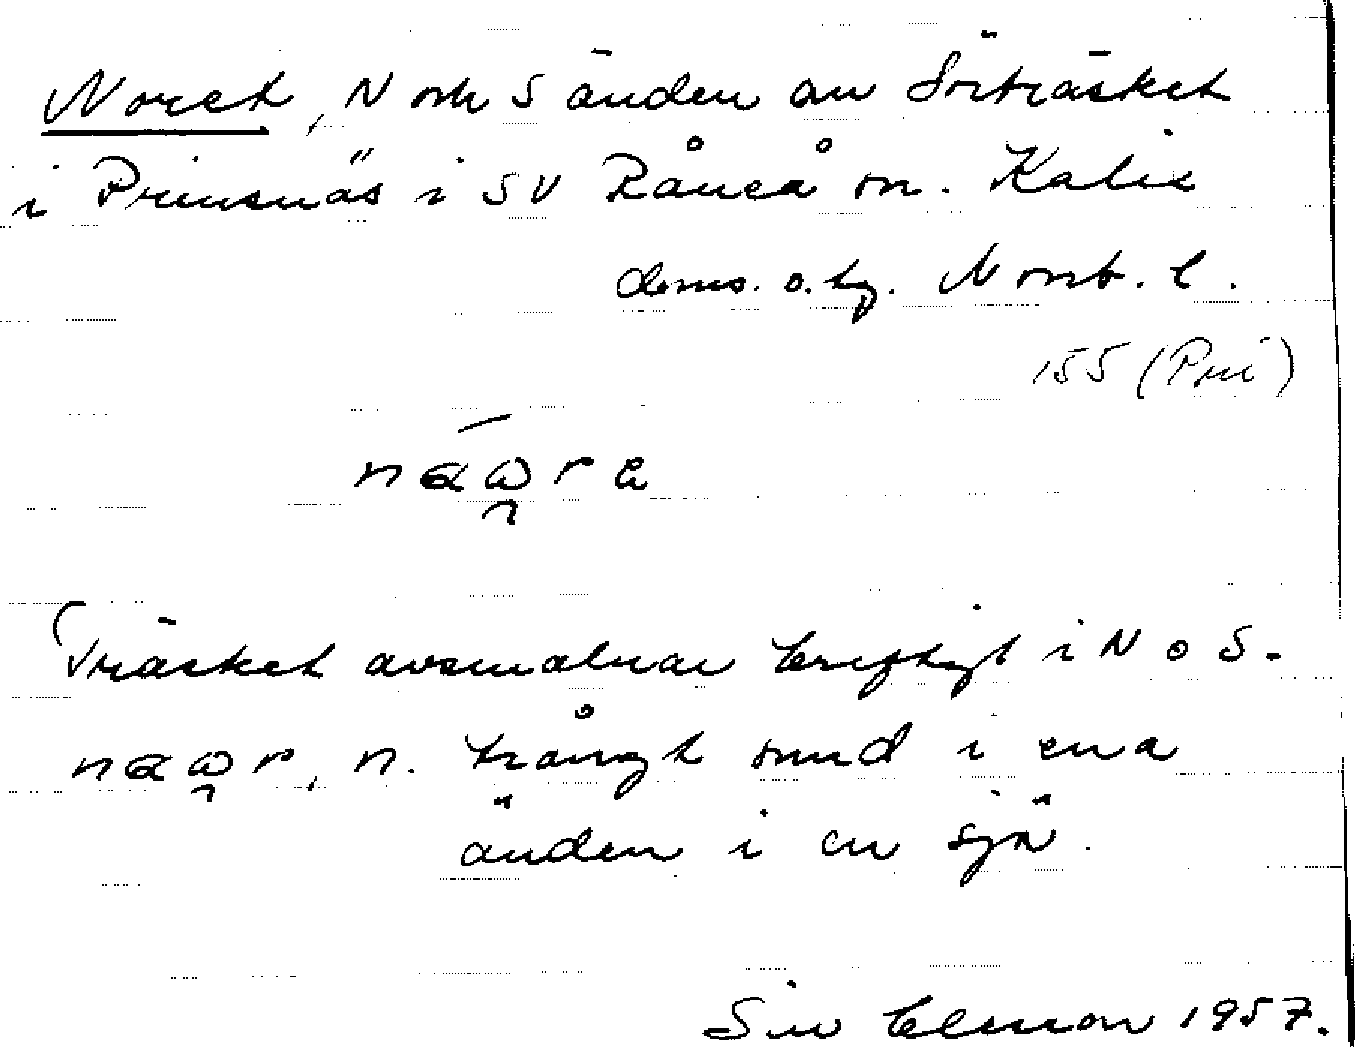 Noret, N och S änden av Sörträsket
i Prinsnäs i SV Råneå sn. Kalix
doms. o. tg. Norrb. l.
155 (Pri)
naωre
(Träsket avsmalnar kraftigt i N o S.
naωr, n. trångt sund i ena
änden i en sjö.
Siv 1957.